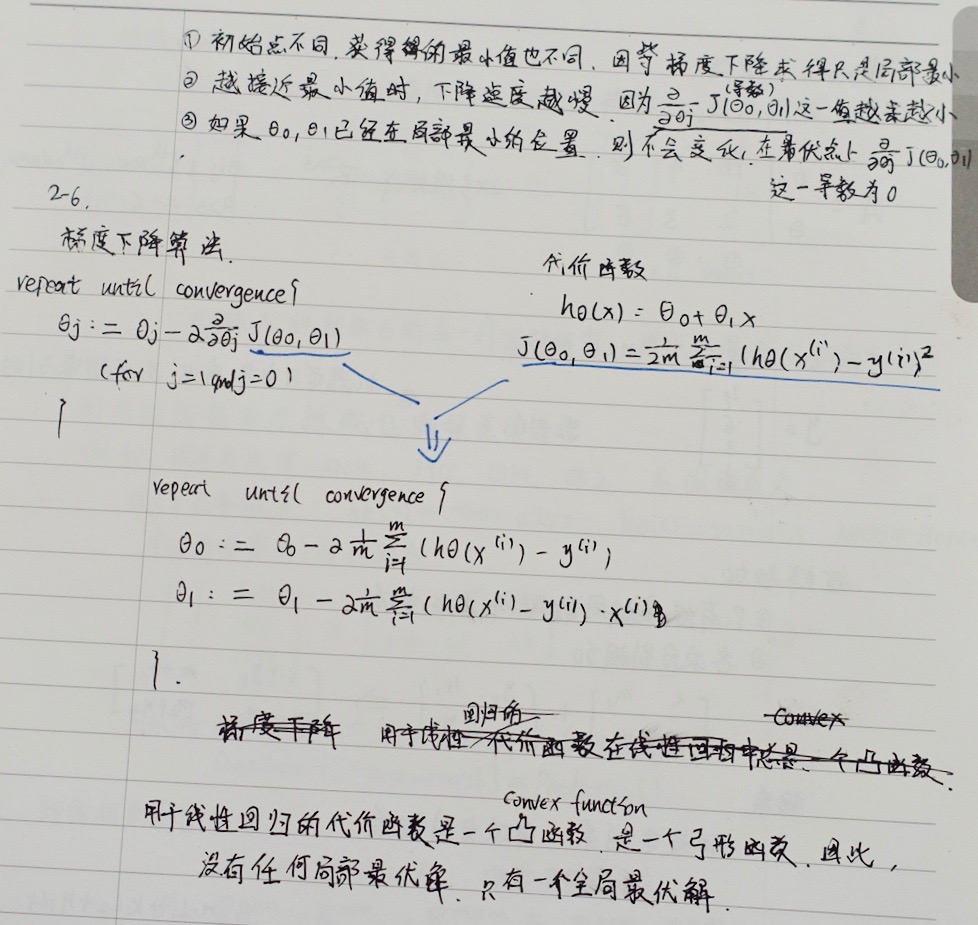 ① 初始点不同,获得的最小值也不同,因 梯度下降求得只是局部最小
② 越接近最小值时,下降速度越慢.因为 ∂/∂θj J(θ0,θ1)(导数)这一值越来越小
③ 如果 θ0,θ1 已经在局部最小的位置,则不会变化,在最优点上 ∂/∂θj J(θ0,θ1)
这一导数为0
2-6.
梯度下降算法.
repeat until convergence{
θj := θj - α ∂/∂θj J(θ0,θ1)
(for j=1 and j=0)
}
代价函数
hθ(x) = θ0 + θ1x
J(θ0,θ1) = 1/2m Σ_{i=1}^{m} (hθ(x^(i)) - y^(i))²
⇓
repeat until convergence {
θ0 := θ0 - α 1/m Σ_{i=1}^{m} (hθ(x^(i)) - y^(i))
θ1 := θ1 - α 1/m Σ_{i=1}^{m} (hθ(x^(i)) - y^(i)) · x^(i)
}.
梯度下降 用于线性回归的代价函数在线性回归中总是一个凸函数. convex
convex function
用于线性回归的代价函数是一个凸函数.是一个弓形函数.因此,
没有任何局部最优解.只有一个全局最优解.